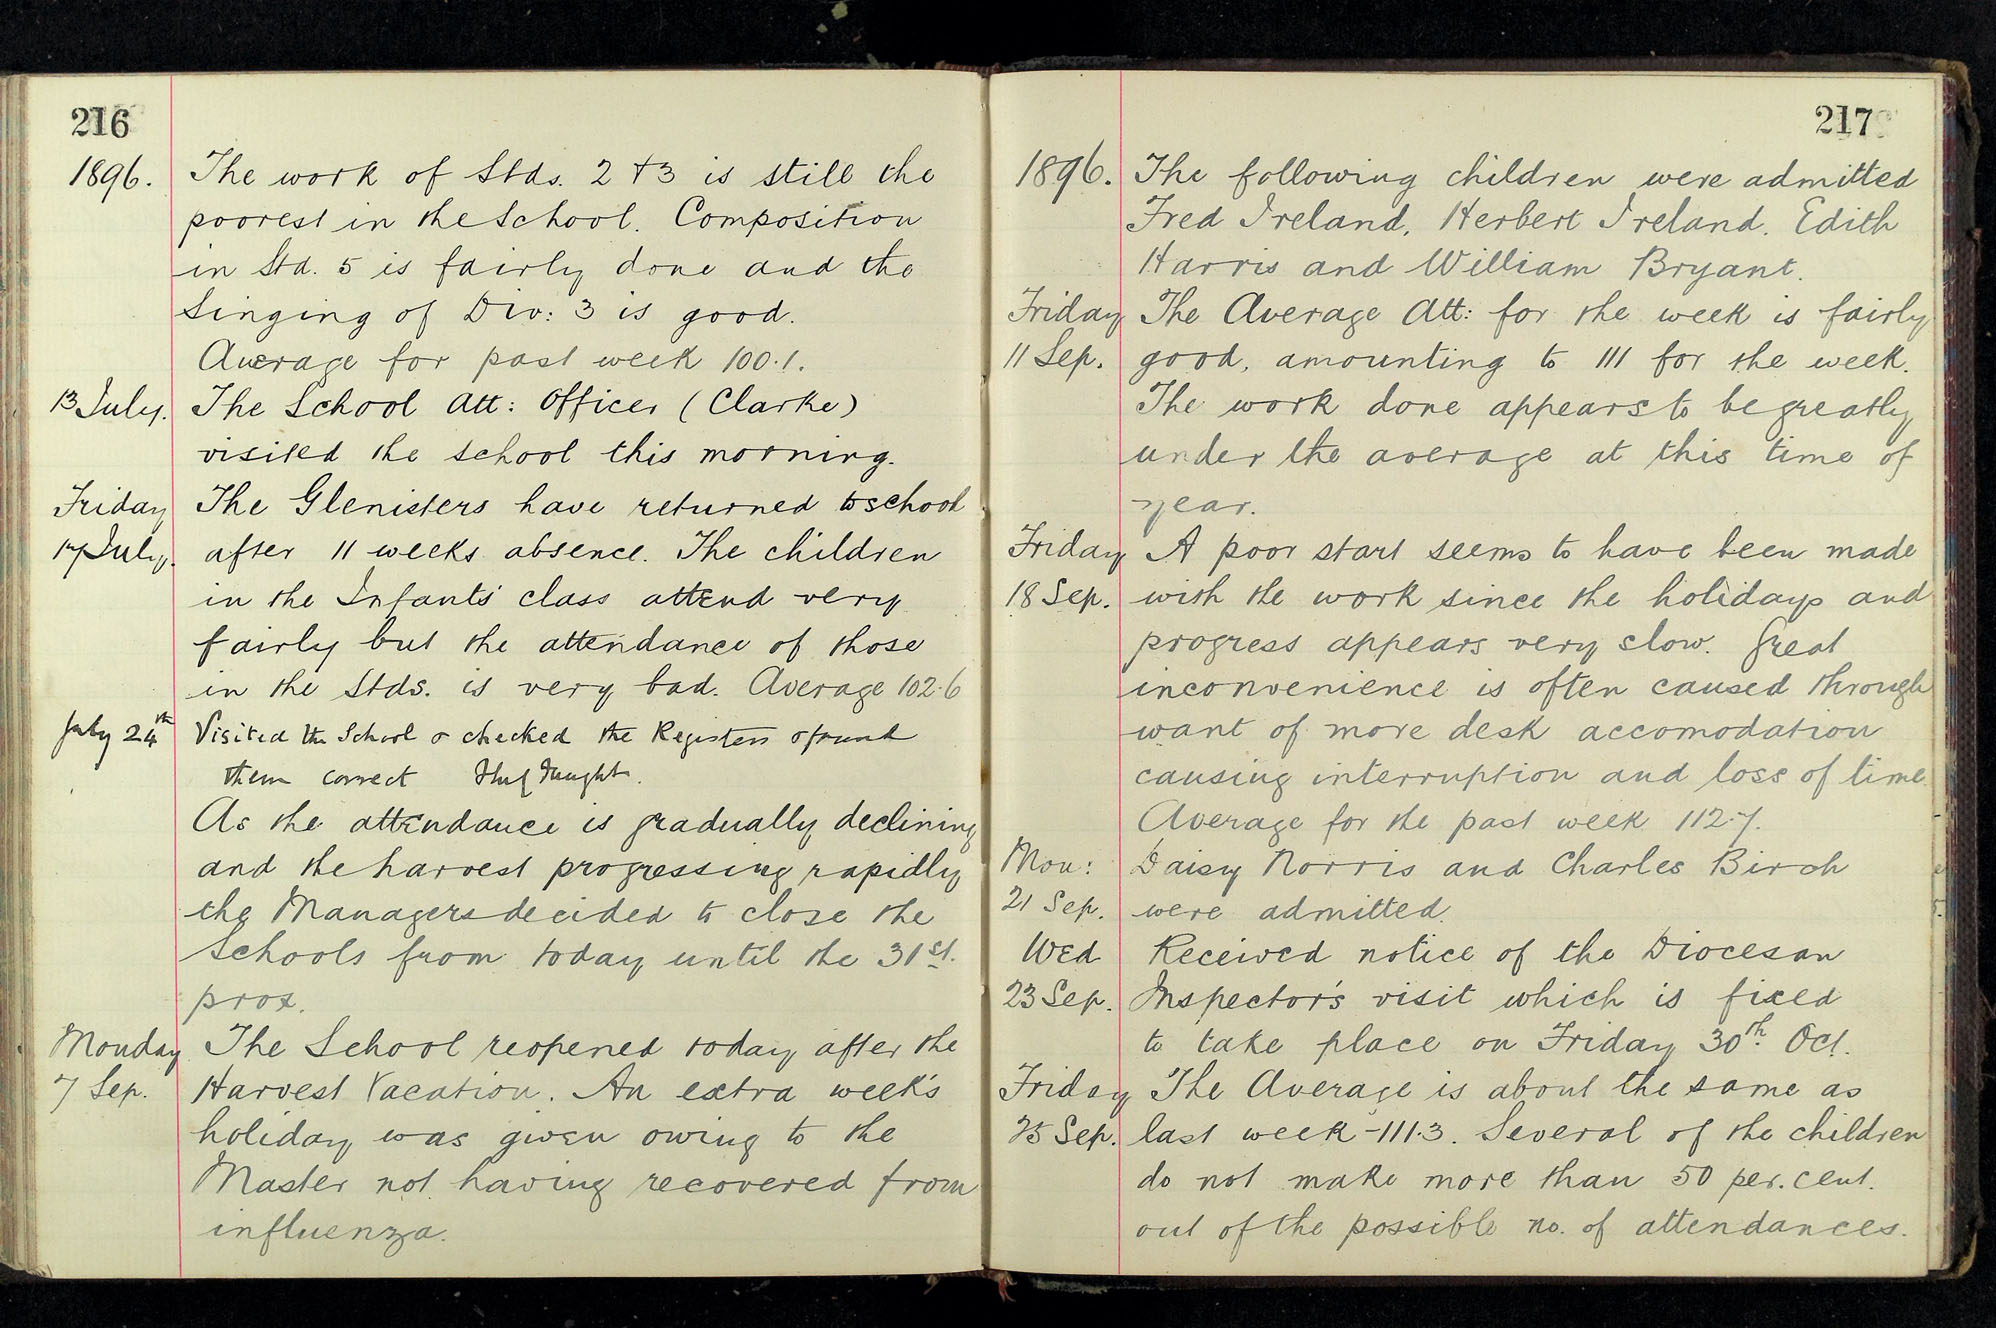 216
1896. The work of Stds. 2 & 3 is still the
poorest in the School. Composition
in Std. 5 is fairly done and the
Singing of Div: 3 is good.
Average for past week 100.1.
13 July. The School Att: Officer (Clarke)
visited the school this morning.
Friday The Glenisters have returned to school
17 July. after 11 weeks absence. The children
in the Infants' class attend very
fairly but the attendance of those
in the Stds. is very bad. Average 102.6
July 24th Visited the School & checked the Registers & found
them correct
As the attendance is gradually declining
and the harvest progressing rapidly
the Managers decided to close the
Schools from today until the 31st.
prox.
Monday The School reopened today after the
7 Sep. Harvest Vacation. An extra week's
holiday was given owing to the
Master not having recovered from
influenza.
217
1896. The following children were admitted
Fred Ireland, Herbert Ireland. Edith
Harris and William Bryant.
Friday The Average Att: for the week is fairly
11 Sep. good, amounting to 111 for the week.
The work done appears to be greatly
under the average at this time of
year.
Friday A poor start seems to have been made
18 Sep. with the work since the holidays and
progress appears very slow. Great
inconvenience is often caused through
want of more desk accomodation
causing interruption and loss of time
Average for the past week 112.7.
Mon: Daisy Norris and Charles Birch
21 Sep. were admitted.
Wed Received notice of the Diocesan
23 Sep. Inspector's visit which is fixed
to take place on Friday 30th. Oct.
Friday The Average is about the same as
25 Sep. last week - 111.3. Several of the children
do not make more than 50 per. cent.
out of the possible no. of attendances.